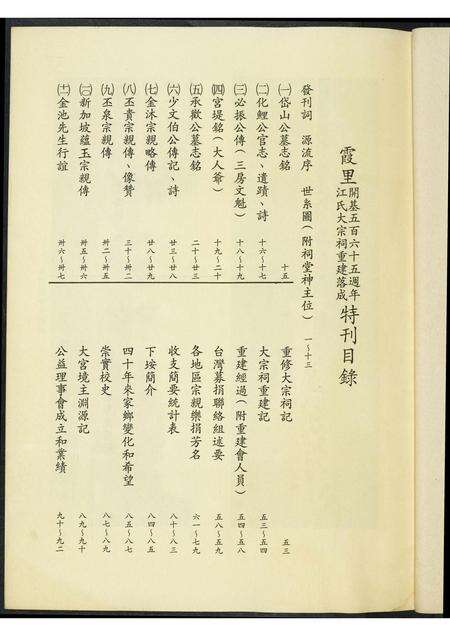 霞里開基五百六十五週年
江氏大宗祠重建落成特刊目錄
發刊詞 源流序 世系圖(附祠堂神主位) 一~十三
㈠岱山公墓志銘 十五
㈡化鯉公官志、遺蹟、詩 十六~十七
㈢必振公傳(三房文魁) 十八~十九
㈣宮堤銘(大人爺) 十九~二十
㈤承徽公墓志銘 二十~廿三
㈥少文伯公傳記、詩 廿三~廿八
㈦金沐宗親略傳 廿八~廿九
㈧丕貴宗親傳、像贊 三十~卅二
㈨丕泉宗親傳 卅二~卅五
㈩新加坡蘊玉宗親傳 卅五~卅六
(十一)金池先生行誼 卅六~卅七
重修大宗祠記 五三
大宗祠重建記 五三~五四
重建經過(附重建會人員) 五四~五八
台灣募捐聯絡組述要 五八~五九
各地區宗親樂捐芳名 六一~七九
收支簡要統計表 八十~八三
下垵簡介 八四~八五
四十年來家鄉變化和希望 八五~八七
崇實校史 八七~八九
大宮境主淵源記 八九~九十
公益理事會成立和業績 九十~九二